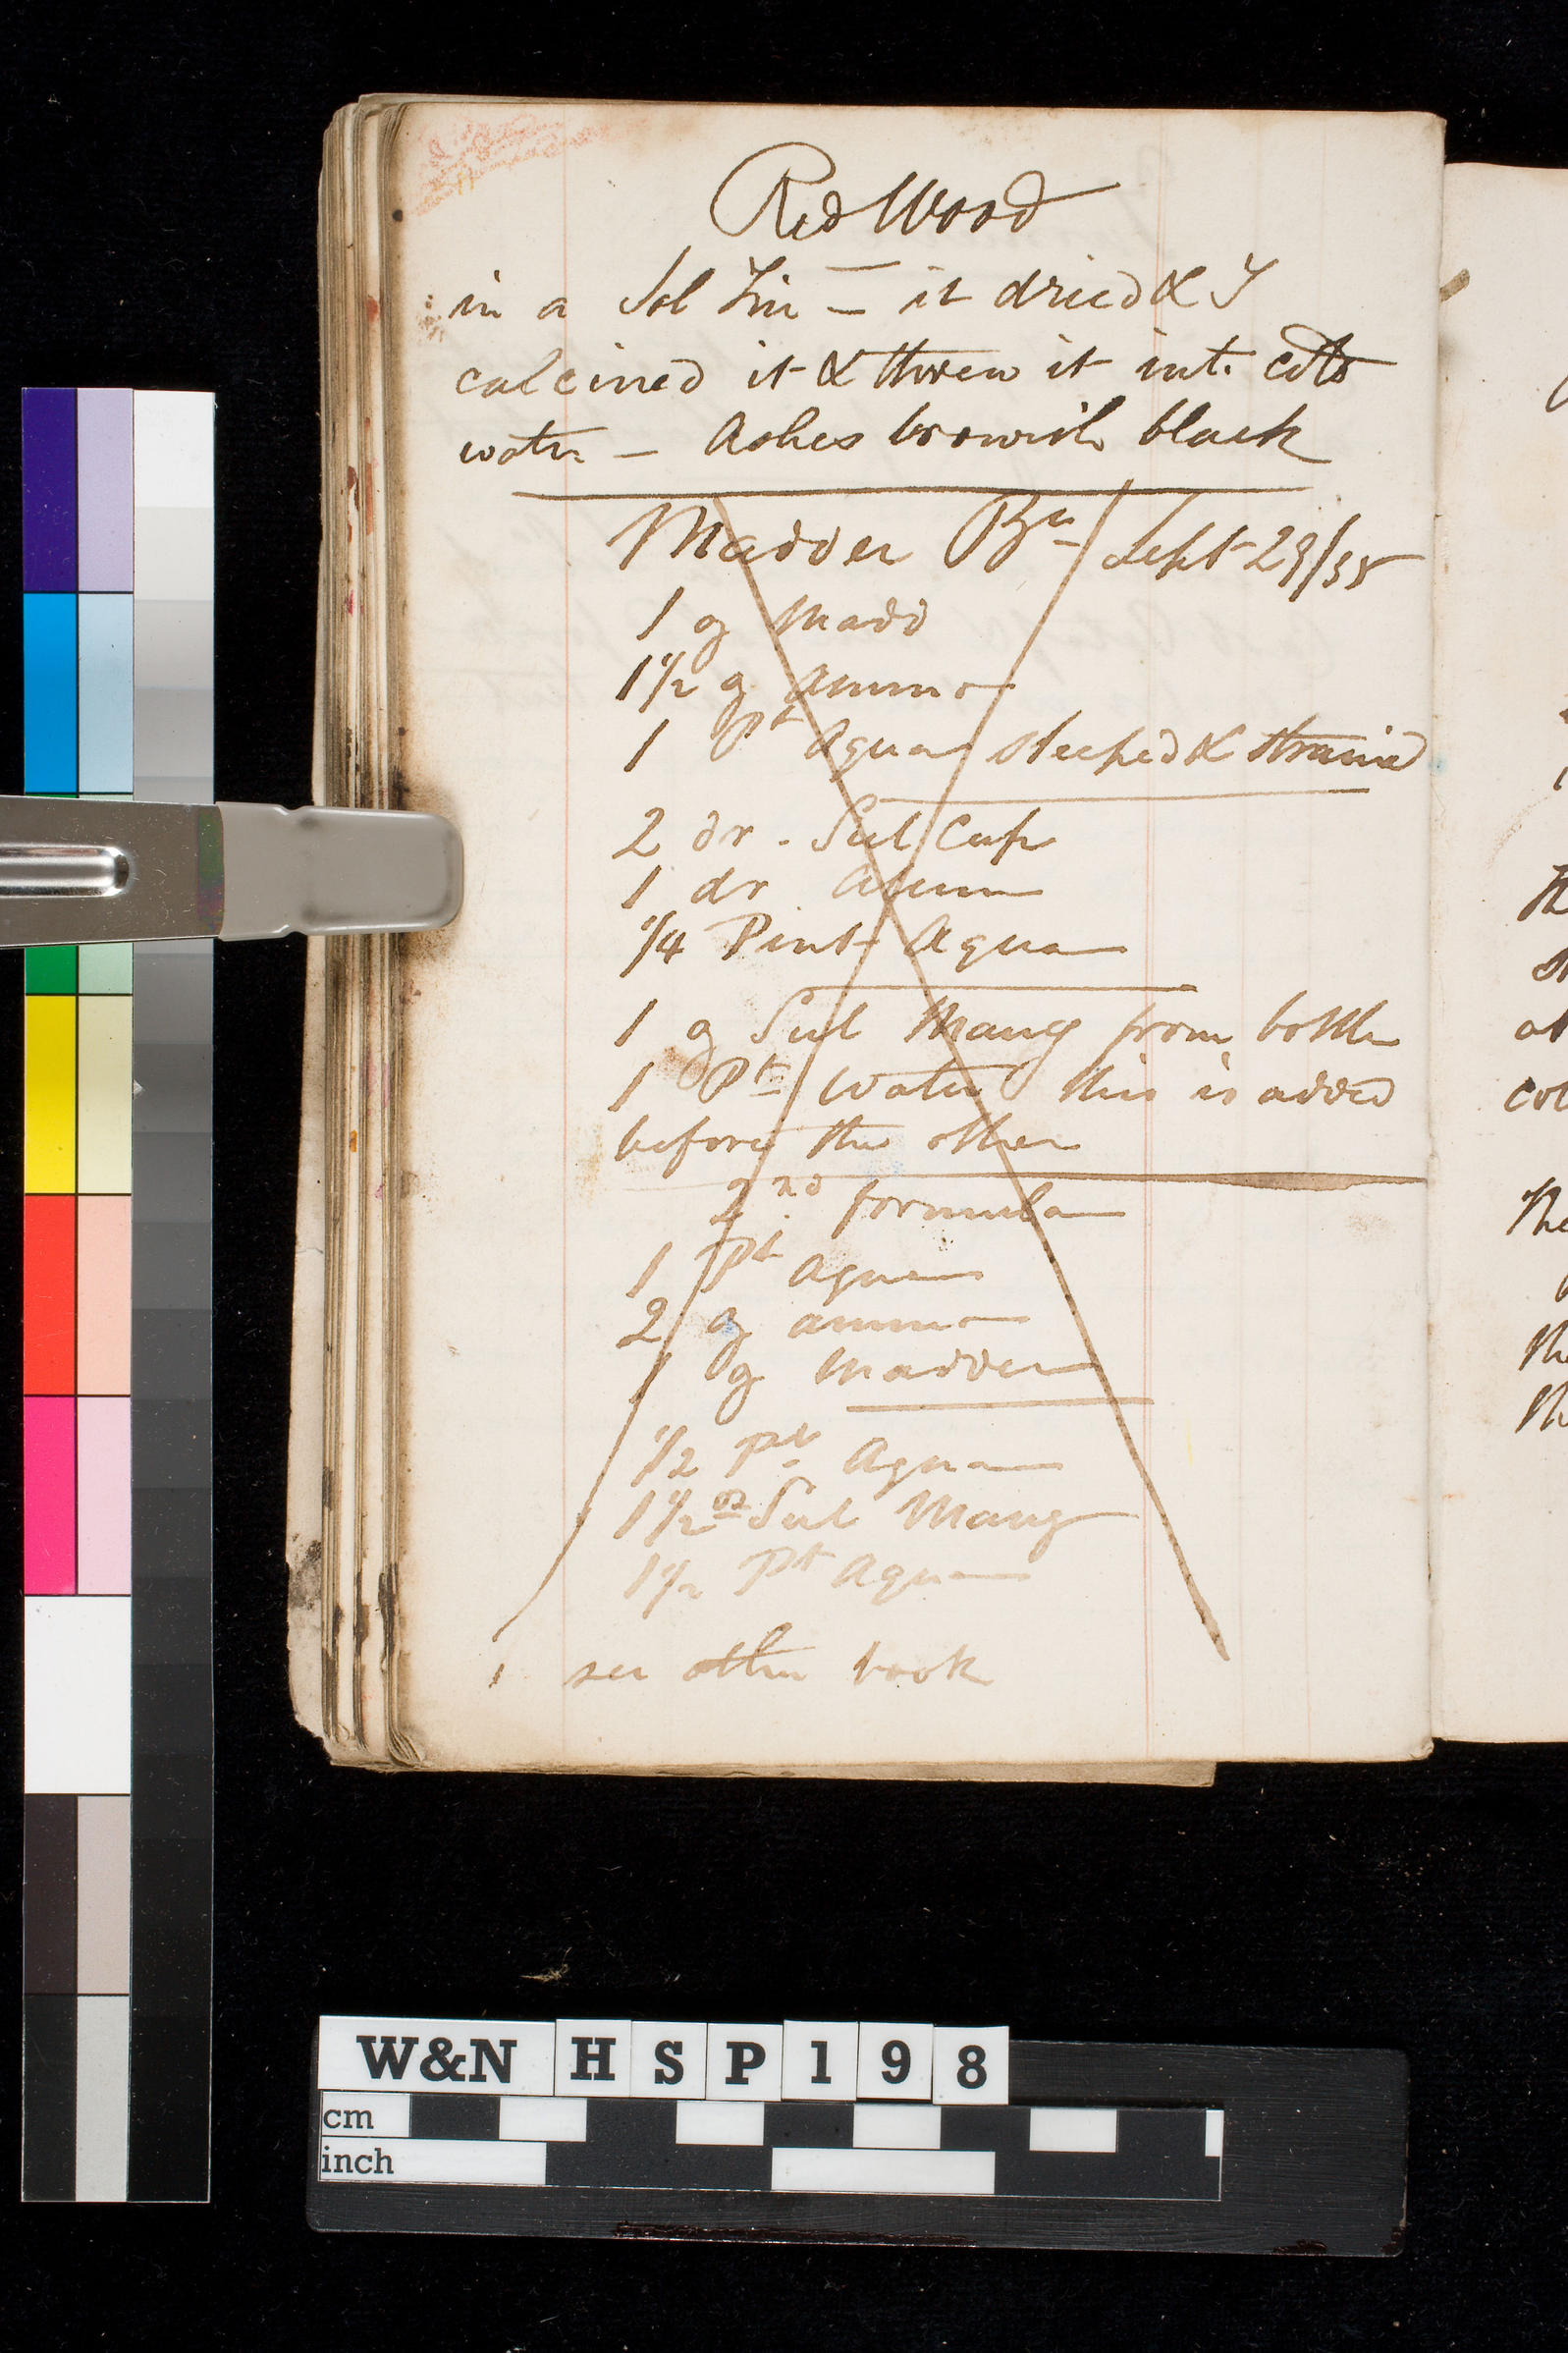 Red Wood
in a Sol Tin — it dried & I
calcined it & threw it into cold
water — Ashes brownish black
Madder Brn Sept 29/35
1 oz Madd
1 1/2 oz Ammo
1 Pt Aqua steeped & strained
2 dr. Sul Cup
1 dr Alum
1/4 Pint Aqua
1 oz Sul Mang from bottle
1 Pt Water this is added
before the other
2nd formula
1 Pt Aqua
2 oz ammo
1 oz Madder
1/2 Pt Aqua
1 1/2 oz Sul Mang
1 1/2 Pt Aqua
see other book
Th
st
at
col
The
Th
Th
W&N HSP198
cm
inch